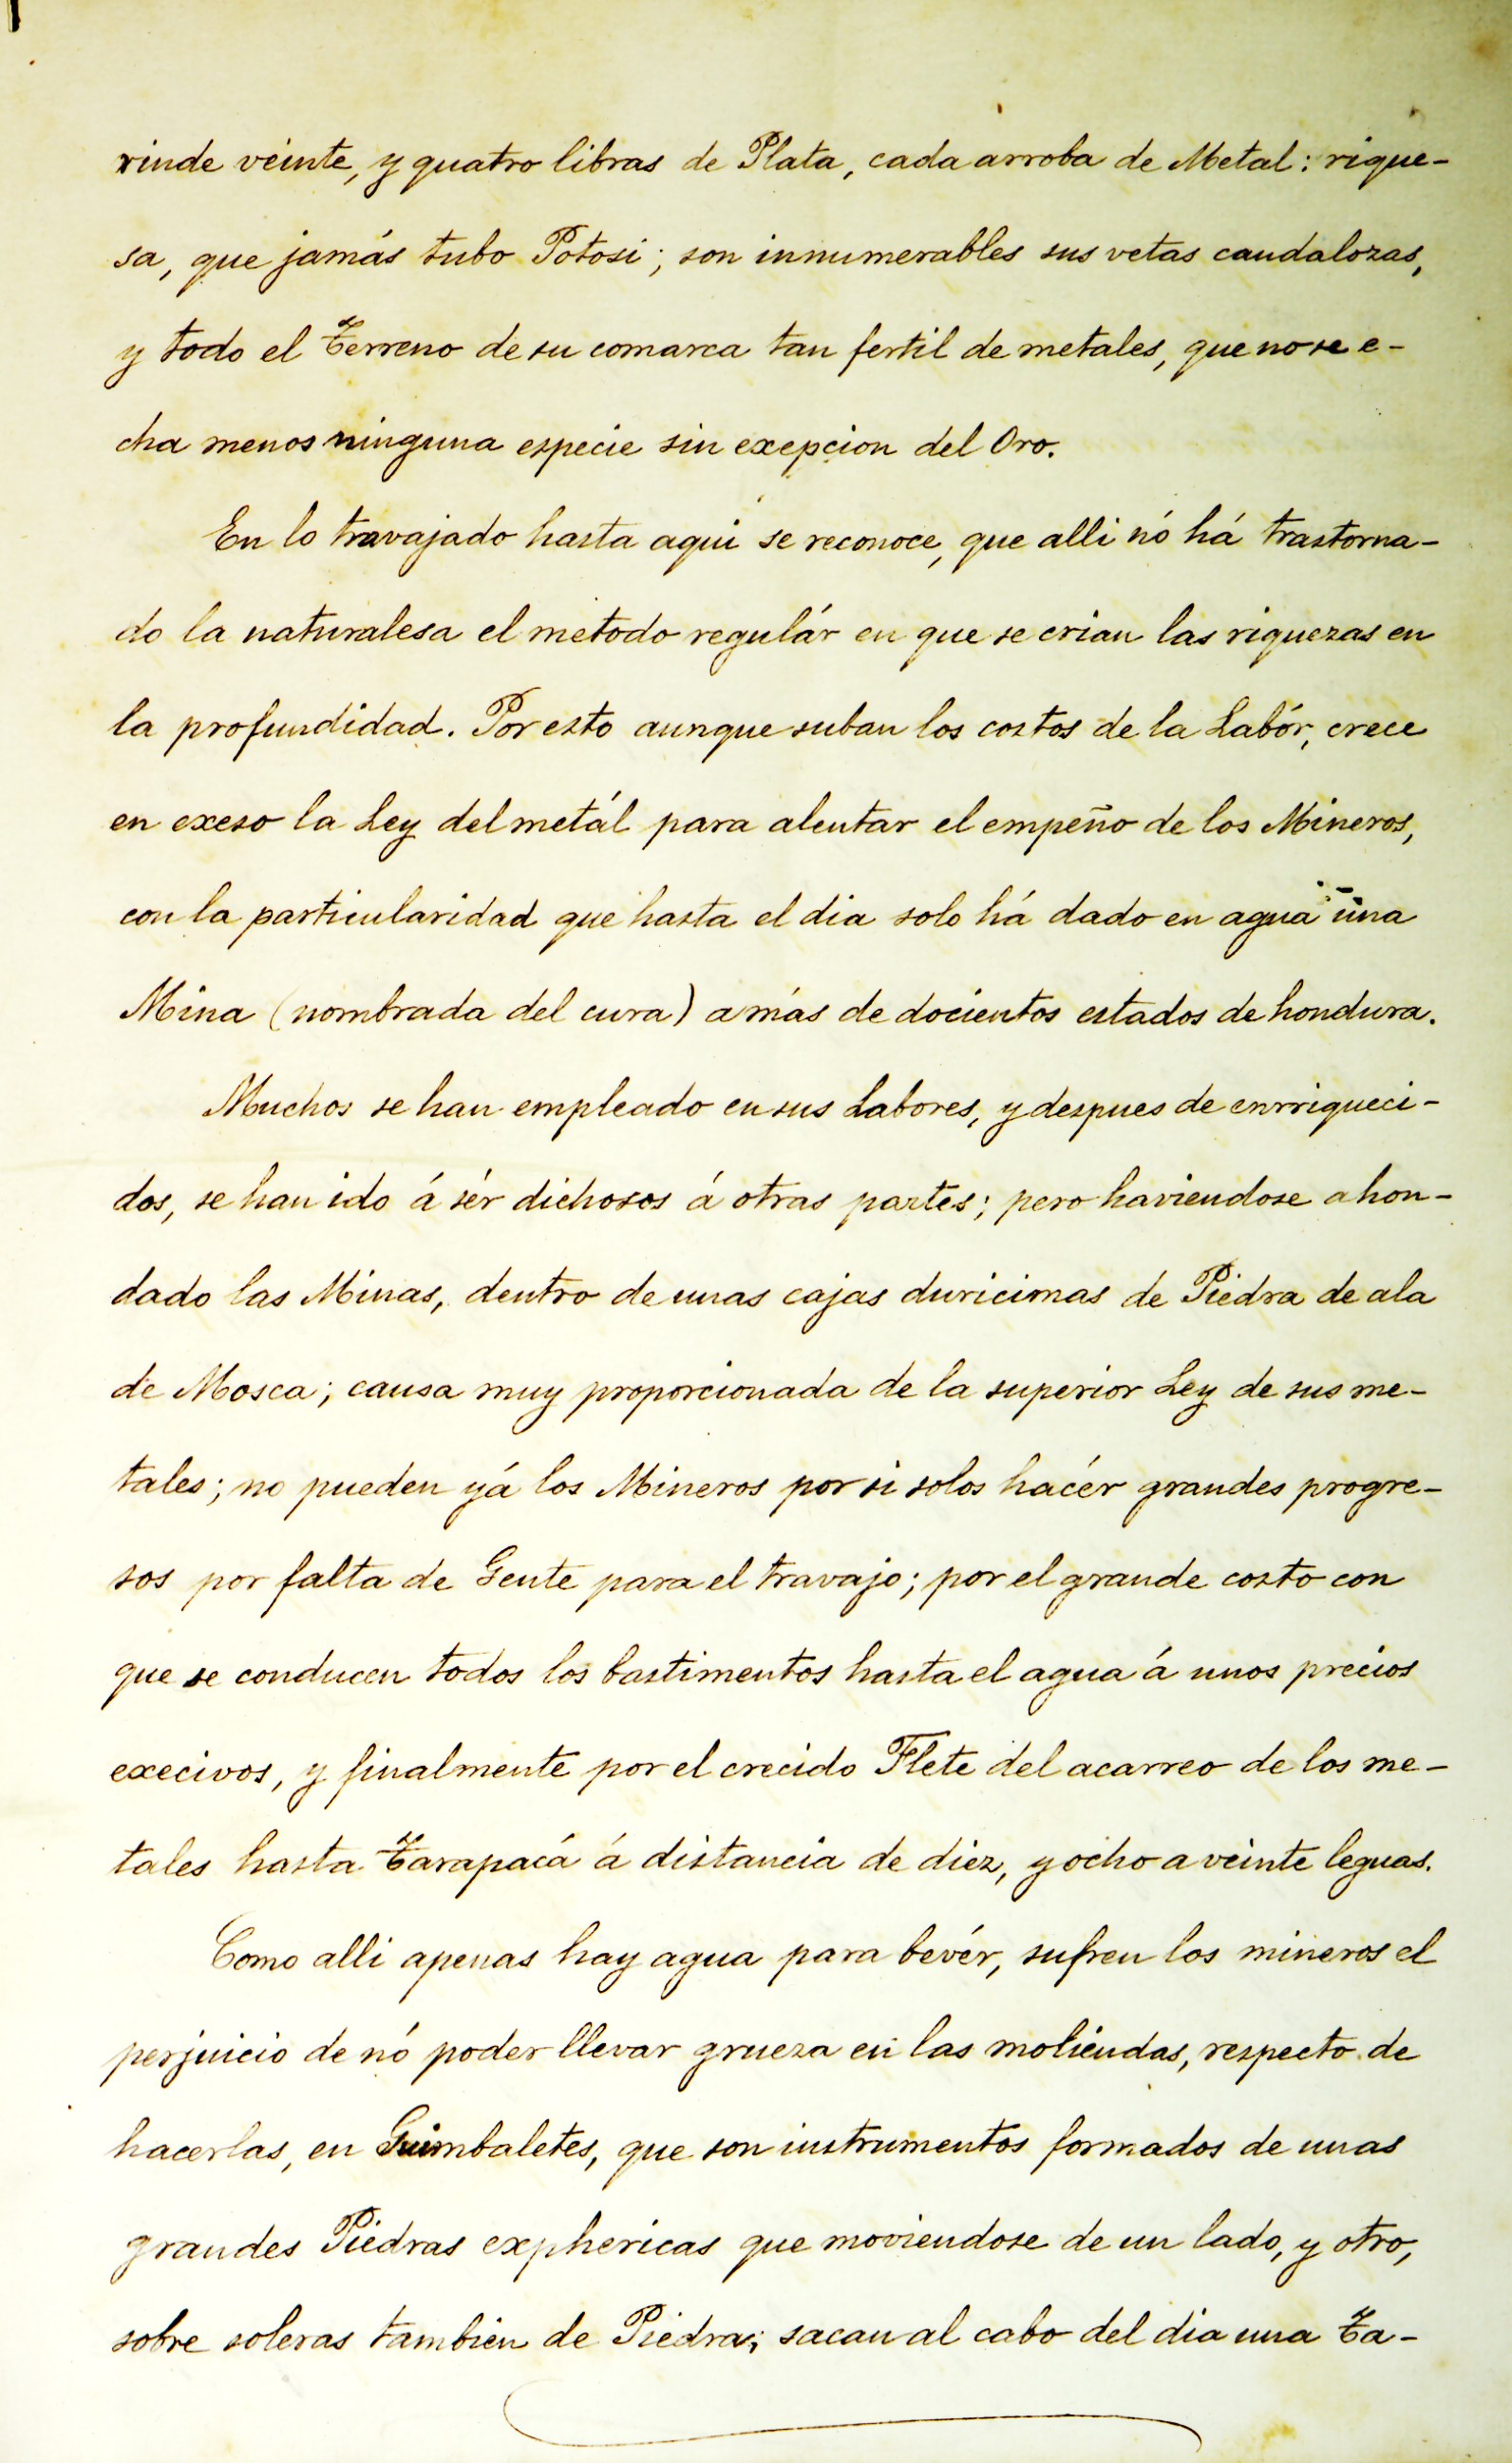 rinde veinte, y quatro libras de Plata, cada arroba de Metal: rique-
sa, que jamás tubo Potosi; son innumerables sus vetas caudalozas,
y todo el Terreno de su comarca tan fertil de metales, que no se e-
cha menos ninguna especie sin exepcion del Oro.
En lo travajado hasta aqui se reconoce, que alli nó há trastorna-
do la naturalesa el metodo regulár en que se crian las riquezas en
la profundidad. Por esto aunque suban los costos de la Labór, crece
en exeso la Ley del metál para alentar el empeño de los Mineros,
con la particularidad que hasta el dia solo há dado en agua una
Mina (nombrada del cura) a más de docientos estados de hondura.
Muchos se han empleado en sus Labores, y despues de enrriqueci-
dos, se han ido á sér dichosos á otras partes; pero haviendose ahon-
dado las Minas, dentro de unas cajas duricimas de Piedra de ala
de Mosca; causa muy proporcionada de la superior Ley de sus me-
tales; no pueden yá los Mineros por si solos hacér grandes progre-
sos por falta de Gente para el travajo; por el grande costo con
que se conducen todos los bastimentos hasta el agua á unos precios
execivos, y finalmente por el crecido Flete del acarreo de los me-
tales hasta Tarapacá á distancia de diez, y ocho a veinte leguas.
Como alli apenas hay agua para bevér, sufren los mineros el
perjuicio de nó poder llevar grueza en las moliendas, respecto de
hacerlas, en Guimbaletes, que son instrumentos formados de unas
grandes Piedras exphericas que moviendose de un lado, y otro,
sobre soleras tambien de Piedra; sacan al cabo del dia una Ta-